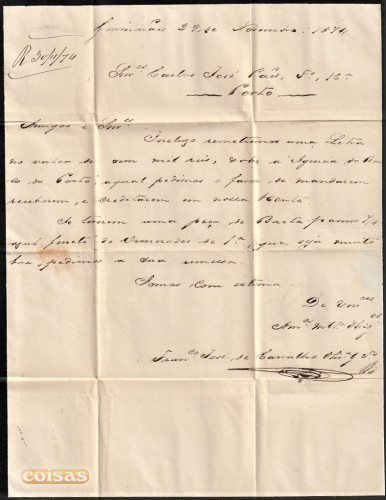 Guimarães 29 de Novembro 1874
R 30/11/74
Snres Carlos José Paes, Fo,
Porto
Amigos e Snres
Incluso remettemos uma Letra
do valor de cem mil réis, sobre a Agencia do Ban
co do Porto, aqual pedimos o favor de mandarem
receberem, e creditarem em nossa Conta
Se tiverem uma peça de Baeta
que seja muito
boa, pedimos a sua remessa.
Somos com estima
De Vmces
Amos
Franco José de Carvalho
coisas